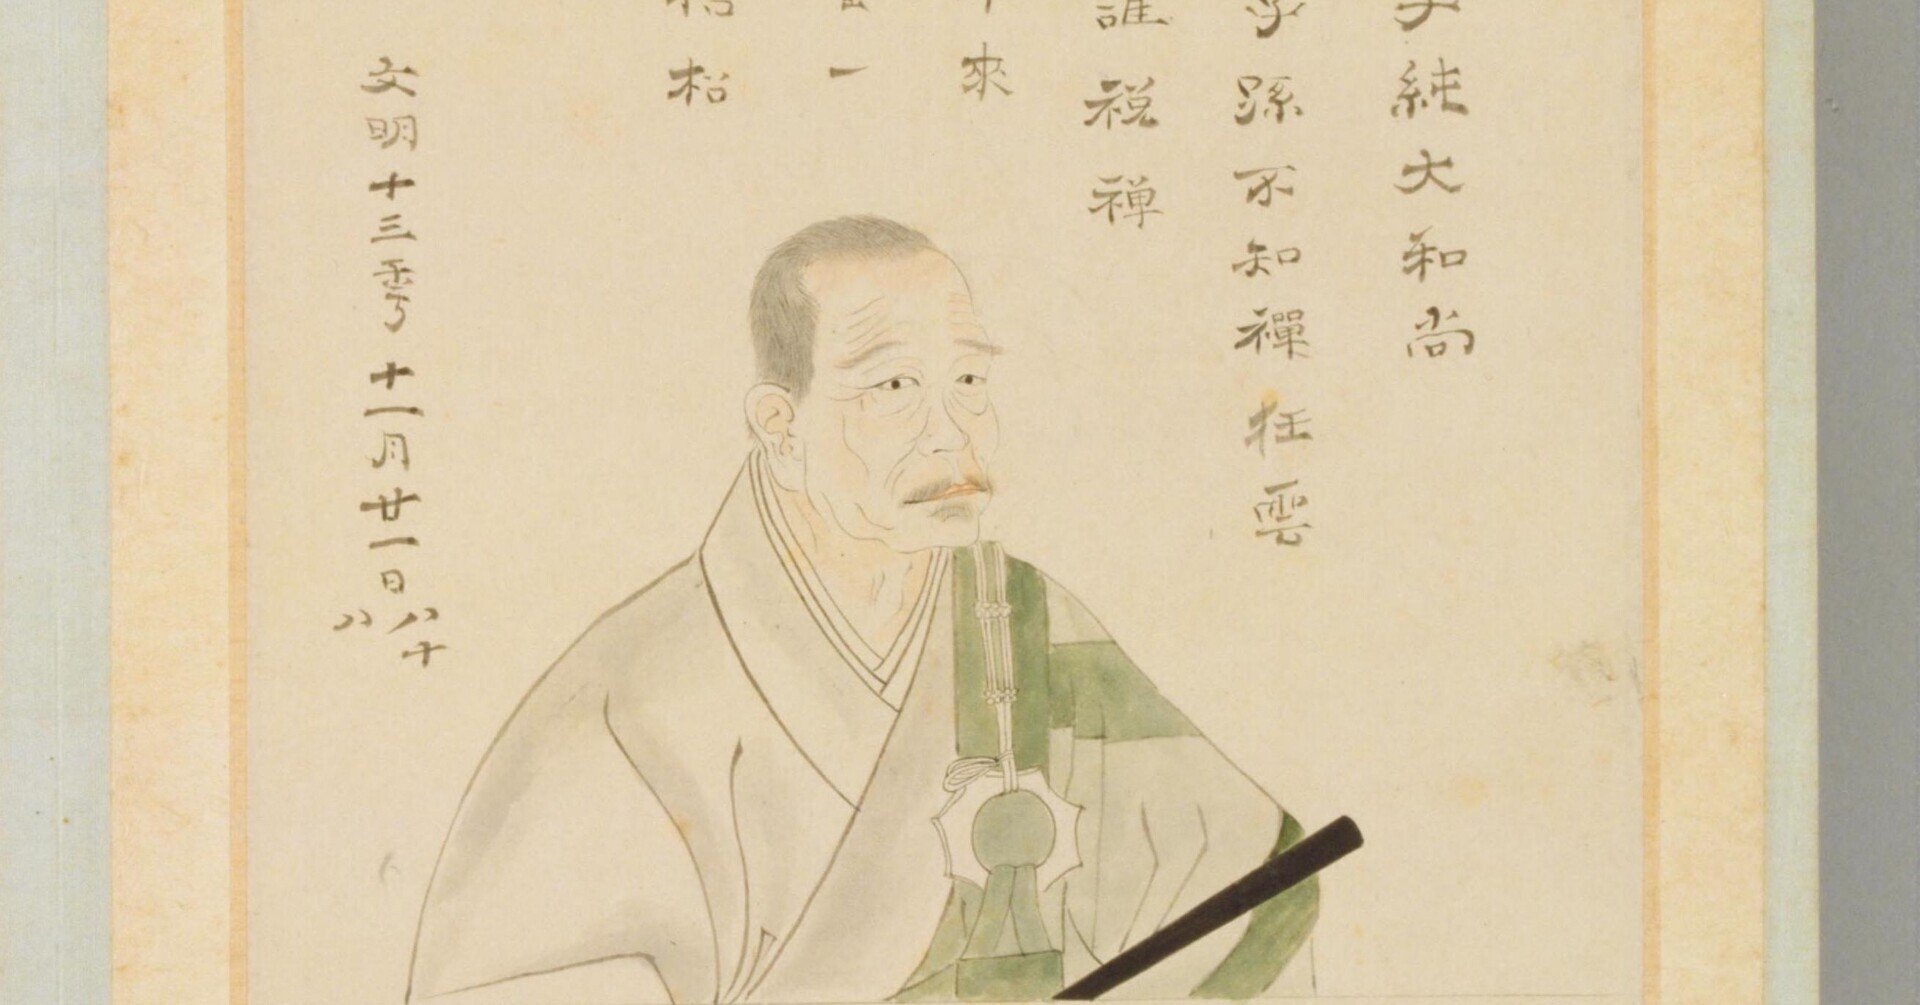 純大和尚
子孫不知禪狂雲
誰説禅
來
一
松
文明十三秊十一月廿一日八十
八